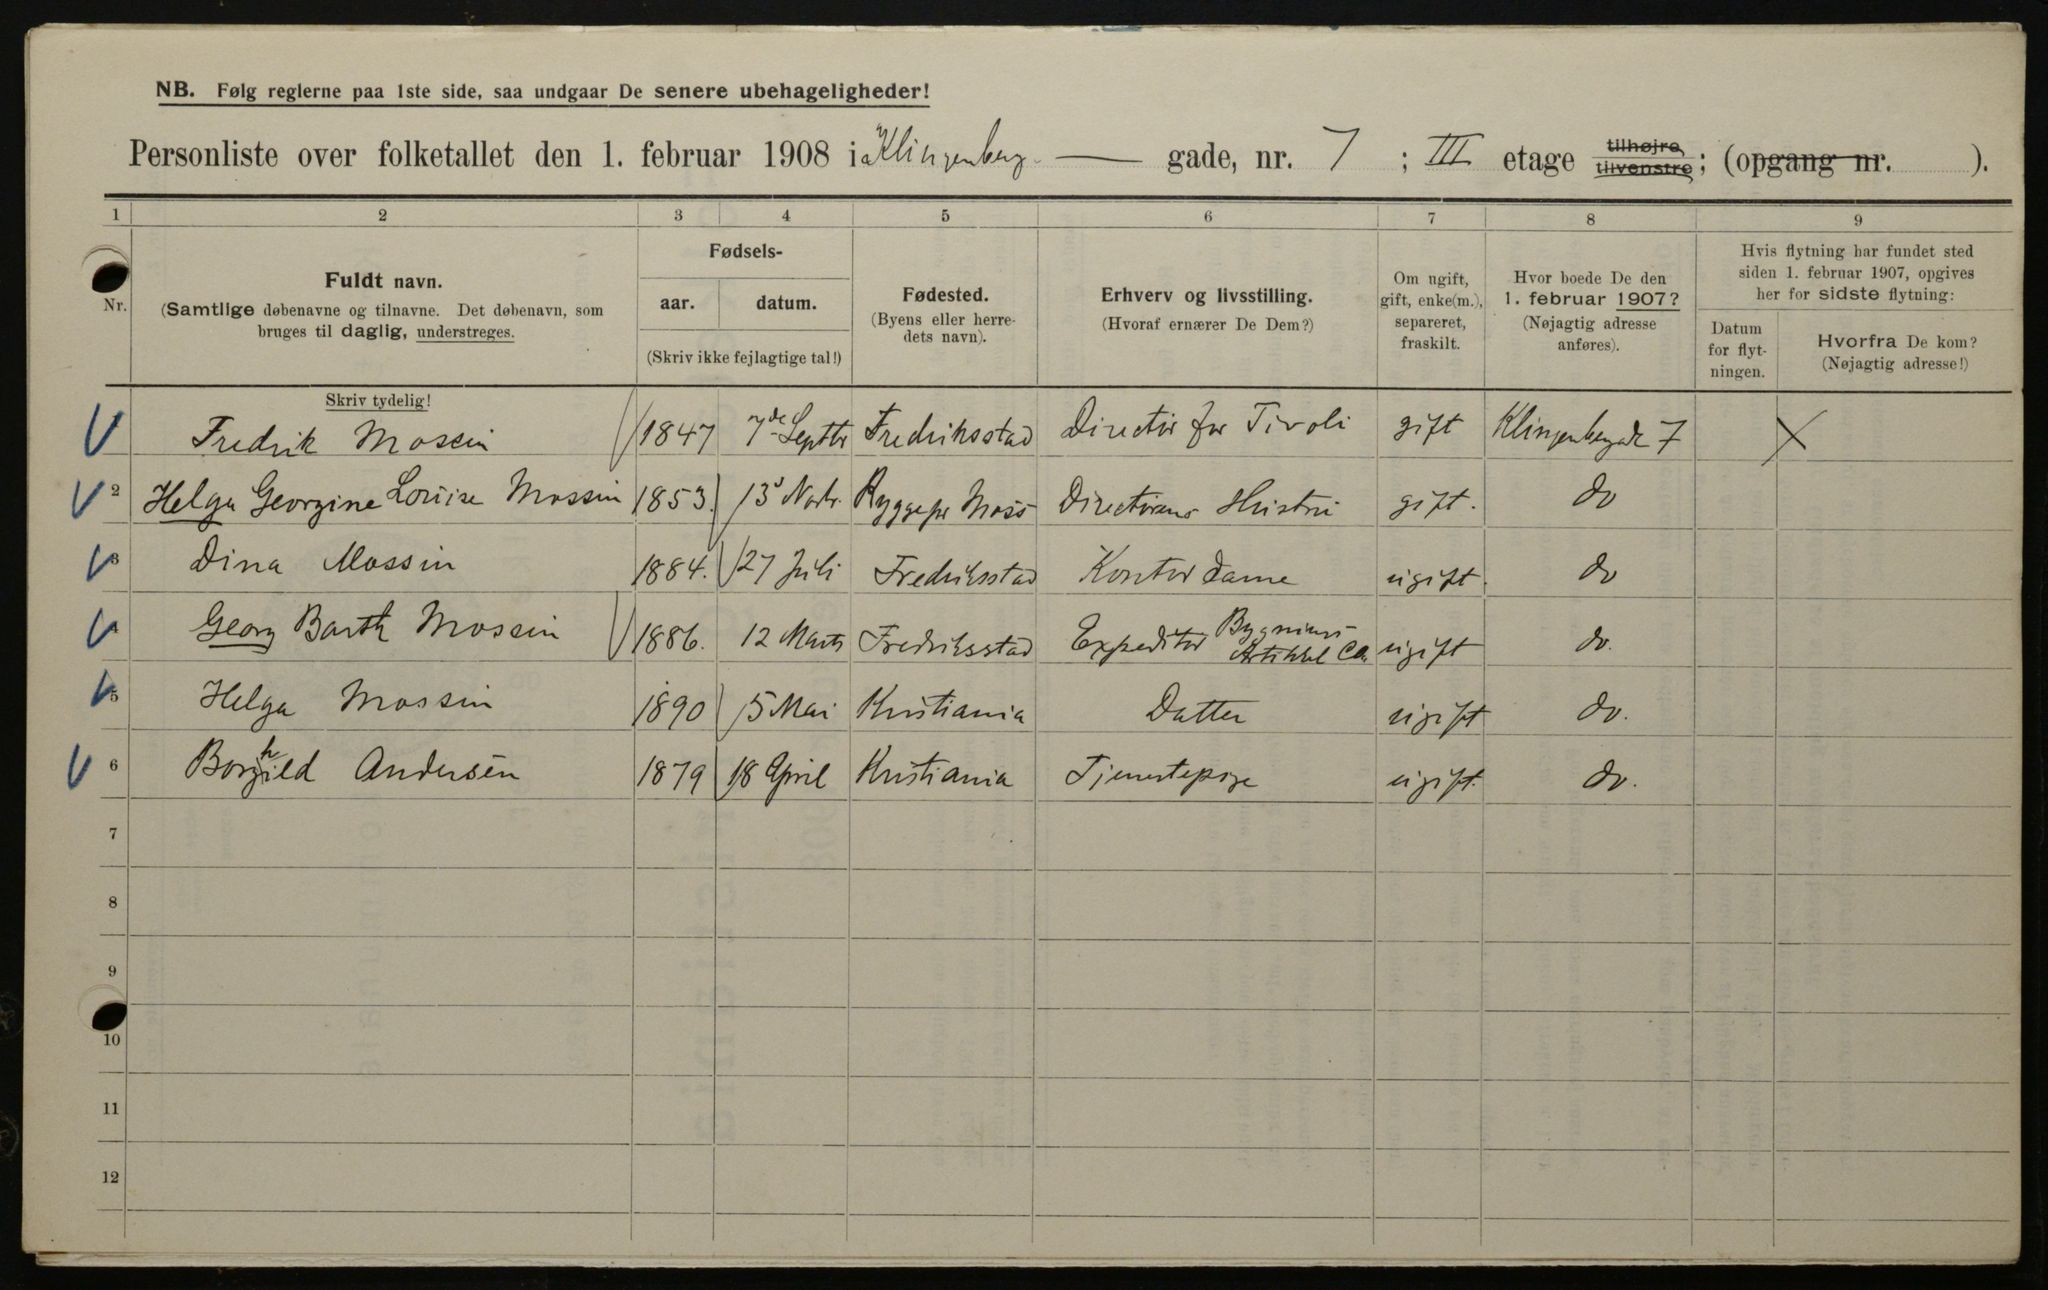 NB. Følg reglerne paa 1ste side, saa undgaar De senere ubehageligheder!
Personliste over folketallet den 1. februar 1908 i Klingenberg- gade, nr. 7 ; III etage tilhøjre, tilvenstre; (opgang nr. ).
1 2 3 4 5 6 7 8 9
Nr.
Fuldt navn.
(Samtlige døbenavne og tilnavne. Det døbenavn, som
bruges til daglig, understreges.
Skriv tydelig!
Fødsels-
aar. datum.
(Skriv ikke fejlagtige tal!)
Fødested.
(Byens eller herre-
dets navn).
Erhverv og livsstilling.
(Hvoraf ernærer De Dem?)
Om ugift,
gift, enke(m.),
separeret,
fraskilt.
Hvor boede De den
1. februar 1907?
(Nøjagtig adresse
anføres).
Hvis flytning har fundet sted
siden 1. februar 1907, opgives
her for sidste flytning:
Datum
for flyt-
ningen.
Hvorfra De kom?
(Nøjagtig adresse!)
1 Fredrik Mossin 1847 7de Septbr Fredriksstad Directør for Tivoli gift Klingenberggd 7 X
2 Helga Georgine Louise Mossin 1853. 13 Novbr. Rygge pr Moss Directørens Hustru gift. do
3 Dina Mossin 1884. 27 Juli Fredriksstad Kontor dame ugift. do
4 Georg Barth Mossin 1886. 12 Marts Fredriksstad Expeditør Bygnings Artikkel Co. ugift do.
5 Helga Mossin 1890 5 Mai Kristiania Datter ugift do.
6 Borghild Andersen 1879 18 April Kristiania Tjenestepige ugift. do.
7
8
9
10
11
12